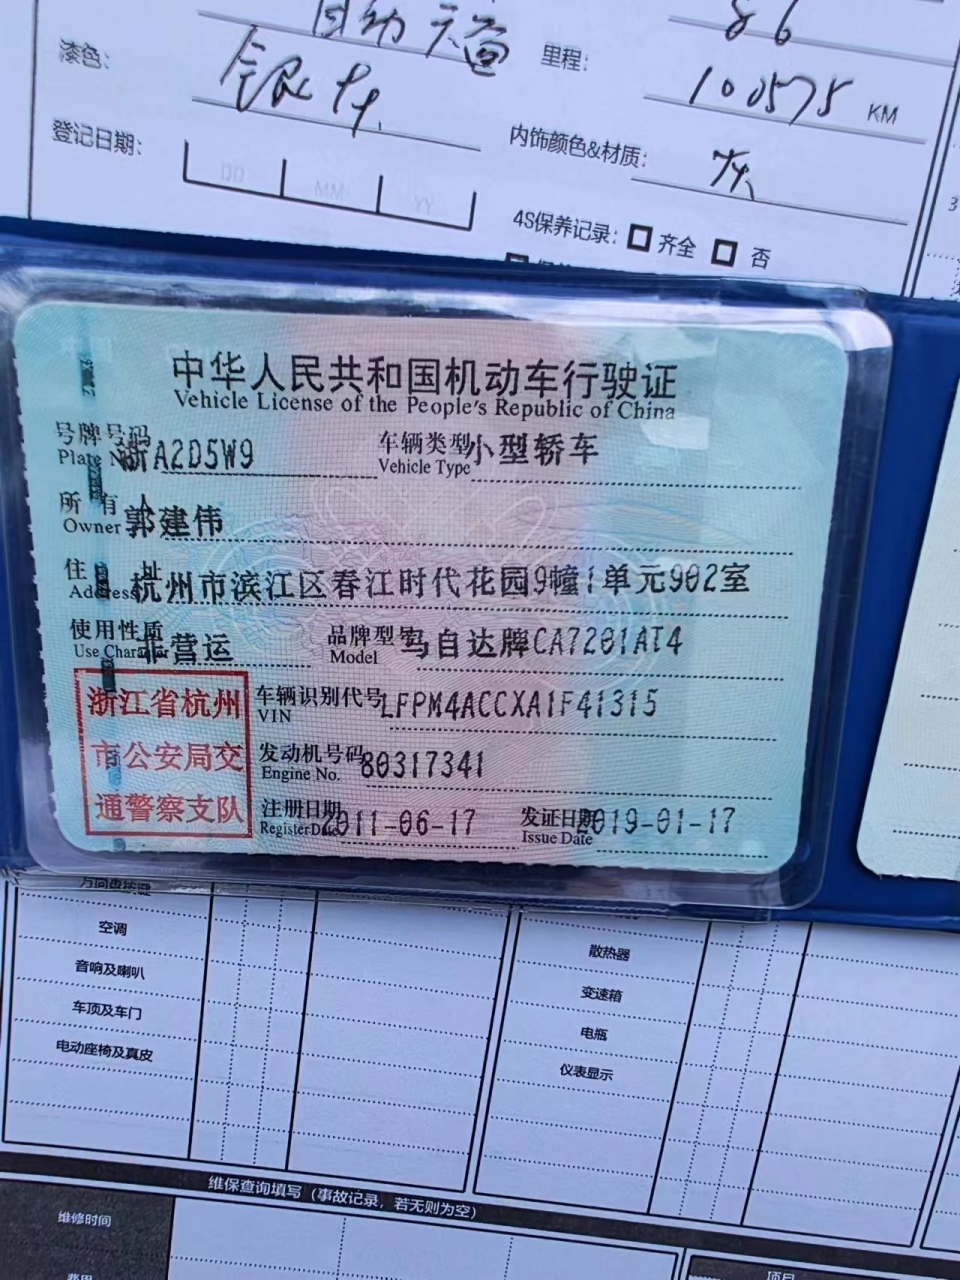 自动 天窗
86
漆色:
银灰
里程:
100575 KM
登记日期:
DD MM YY
内饰颜色&材质:
灰
4S保养记录: 齐全 否
中华人民共和国机动车行驶证
Vehicle License of the People's Republic of China
号牌号码 浙A2D5W9 车辆类型 小型轿车
Plate No. Vehicle Type
所有人 郭建伟
Owner
住址 杭州市滨江区春江时代花园9幢1单元902室
Address
使用性质 非营运 品牌型号 马自达牌CA7201AT4
Use Character Model
浙江省杭州
市公安局交
通警察支队
车辆识别代号 LFPM4ACCXA1F41315
VIN
发动机号码 80317341
Engine No.
注册日期 2011-06-17 发证日期 2019-01-17
Register Date Issue Date
方向盘按键
空调
音响及喇叭
车顶及车门
电动座椅及真皮
散热器
变速箱
电瓶
仪表显示
维保查询填写(事故记录,若无则为空)
维修时间
项目